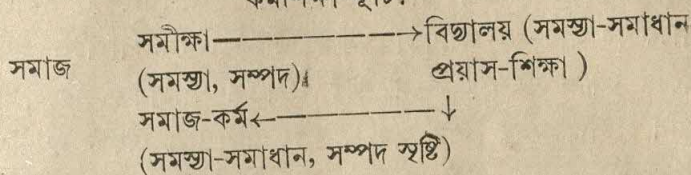 সমীক্ষা————————→বিদ্যালয় (সমস্যা-সমাধান
সমাজ (সমস্যা, সম্পদ)। প্রয়াস-শিক্ষা )
সমাজ-কর্ম←————————↓
(সমস্যা-সমাধান, সম্পদ সৃষ্টি)